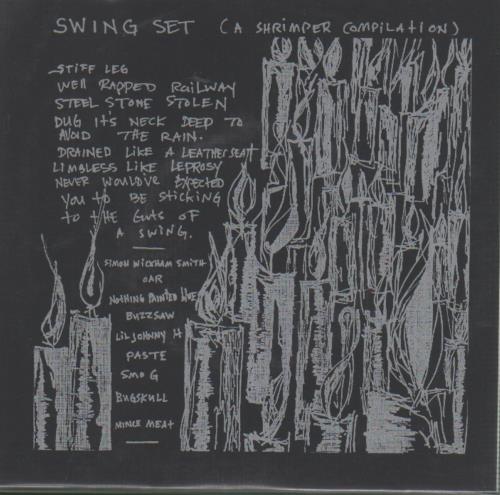 SWING SET (A SHRIMPER COMPILATION)
STIFF LEG
WELL RAPPED RAILWAY
STEEL STONE STOLEN
DUG IT'S NECK DEEP TO
AVOID THE RAIN.
DRAINED LIKE A LEATHER SEAT
LIMBLESS LIKE LEPROSY
NEVER WOULDVE EXPECTED
YOU TO BE STICKING
TO THE GUTS OF
A SWING.
SIMON WICKHAM SMITH
OAR
NOTHING PAINTED BLUE
BUZZSAW
LIL JOHNNY H
PASTE
SMO G
BUGSKULL
MINCE MEAT